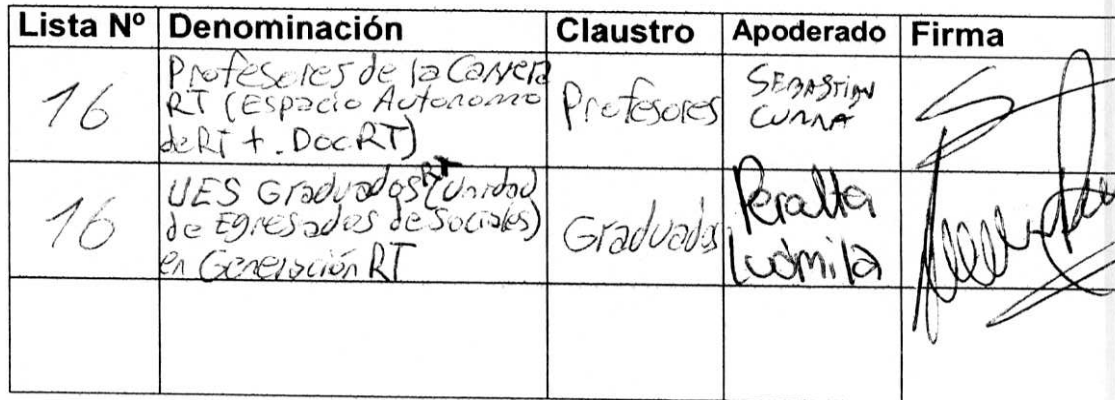 Lista Nº Denominación Claustro Apoderado Firma
16
Profesores de la Carrera
RT (Espacio Autonomo
de RT + . Doc.RT)
Profesores
SEBASTIAN
16
UES Graduados RT (Unidad
de Egresados de Sociales)
en Generación RT
Graduados
Peralta
Ludmila